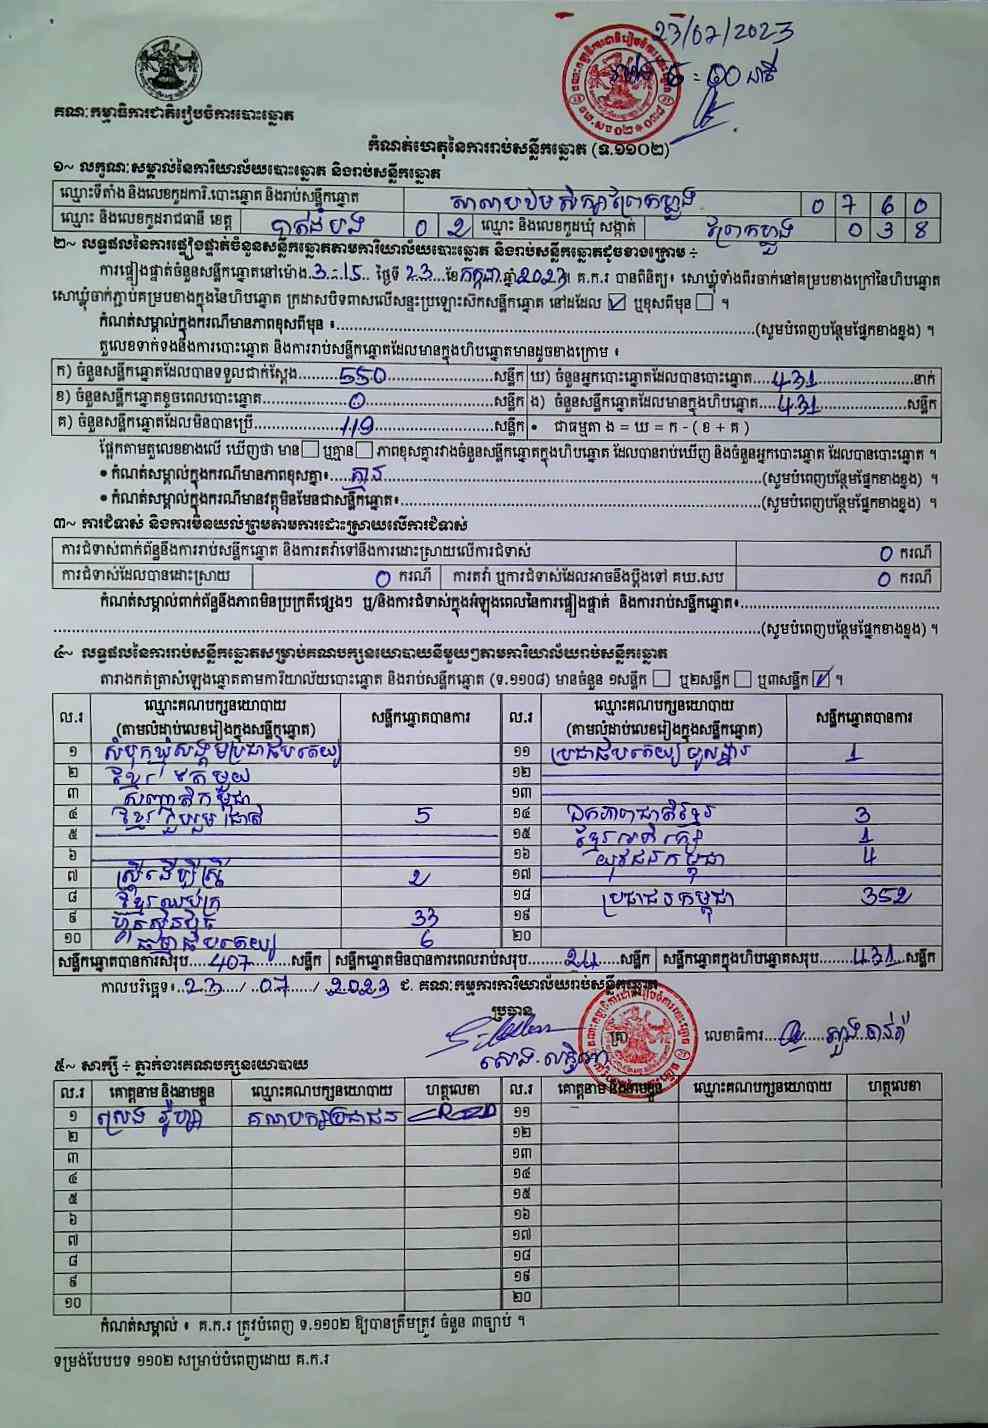 23/07/2023
ម៉ោង 6:00 នាទី
គណៈកម្មាធិការជាតិរៀបចំការបោះឆ្នោត
កំណត់ហេតុនៃការរាប់សន្លឹកឆ្នោត (ទ.១១០២)
១~ លក្ខណៈសម្គាល់នៃការិយាល័យបោះឆ្នោត និងរាប់សន្លឹកឆ្នោត
ឈ្មោះទីតាំង និងលេខកូដការិ.បោះឆ្នោត និងរាប់សន្លឹកឆ្នោត សាលាបឋមសិក្សាព្រែកហ្លួង 0 7 6 0
ឈ្មោះ និងលេខកូដរាជធានី ខេត្ត បាត់ដំបង 0 2 ឈ្មោះ និងលេខកូដឃុំ សង្កាត់ ព្រែកហ្លួង 0 3 8
២~ លទ្ធផលនៃការផ្ទៀងផ្ទាត់ចំនួនសន្លឹកឆ្នោតតាមការិយាល័យបោះឆ្នោត និងរាប់សន្លឹកឆ្នោតដូចខាងក្រោម ÷
ការផ្ទៀងផ្ទាត់ចំនួនសន្លឹកឆ្នោតនៅម៉ោង 3:15 ថ្ងៃទី 23 ខែ កក្កដា ឆ្នាំ 2023។ គ.ក.រ បានពិនិត្យ៖ សោឃ្មុំទាំងពីរចាក់នៅគម្របខាងក្រៅនៃហិបឆ្នោត
សោឃ្មុំចាក់ភ្ជាប់គម្របខាងក្នុងនៃហិបឆ្នោត ក្រដាសបិទពាសលើសន្ទះប្រឡោះសិកសន្លឹកឆ្នោត នៅដដែល ☑ ឬខុសពីមុន ☐ ។
កំណត់សម្គាល់ក្នុងករណីមានភាពខុសពីមុន ៖ (សូមបំពេញបន្ថែមផ្នែកខាងខ្នង) ។
តួលេខទាក់ទងនឹងការបោះឆ្នោត និងការរាប់សន្លឹកឆ្នោតដែលមានក្នុងហិបឆ្នោតមានដូចខាងក្រោម ៖
ក) ចំនួនសន្លឹកឆ្នោតដែលបានទទួលជាក់ស្តែង 550 សន្លឹក ឃ) ចំនួនអ្នកបោះឆ្នោតដែលបានបោះឆ្នោត 431 នាក់
ខ) ចំនួនសន្លឹកឆ្នោតខូចពេលបោះឆ្នោត 0 សន្លឹក ង) ចំនួនសន្លឹកឆ្នោតដែលមានក្នុងហិបឆ្នោត 431 សន្លឹក
គ) ចំនួនសន្លឹកឆ្នោតដែលមិនបានប្រើ 119 សន្លឹក • ជាធម្មតា ង = ឃ = ក - ( ខ + គ )
ផ្អែកតាមតួលេខខាងលើ ឃើញថា មាន ☐ ឬគ្មាន ☐ ភាពខុសគ្នារវាងចំនួនសន្លឹកឆ្នោតក្នុងហិបឆ្នោត ដែលបានរាប់ឃើញ និងចំនួនអ្នកបោះឆ្នោត ដែលបានបោះឆ្នោត ។
• កំណត់សម្គាល់ក្នុងករណីមានភាពខុសគ្នា៖ គ្មាន (សូមបំពេញបន្ថែមផ្នែកខាងខ្នង) ។
• កំណត់សម្គាល់ក្នុងករណីមានវត្ថុមិនមែនជាសន្លឹកឆ្នោត៖ (សូមបំពេញបន្ថែមផ្នែកខាងខ្នង) ។
៣~ ការជំទាស់ និងការមិនយល់ព្រមតាមការដោះស្រាយលើការជំទាស់
ការជំទាស់ពាក់ព័ន្ធនឹងការរាប់សន្លឹកឆ្នោត និងការតវ៉ាទៅនឹងការដោះស្រាយលើការជំទាស់ 0 ករណី
ការជំទាស់ដែលបានដោះស្រាយ 0 ករណី ការតវ៉ា ឬការជំទាស់ដែលអាចនឹងប្តឹងទៅ គឃ.សប 0 ករណី
កំណត់សម្គាល់ពាក់ព័ន្ធនឹងភាពមិនប្រក្រតីផ្សេងៗ ឬ/និងការជំទាស់ក្នុងអំឡុងពេលនៃការផ្ទៀងផ្ទាត់ និងការរាប់សន្លឹកឆ្នោត៖
(សូមបំពេញបន្ថែមផ្នែកខាងខ្នង) ។
៤~ លទ្ធផលនៃការរាប់សន្លឹកឆ្នោតសម្រាប់គណបក្សនយោបាយនីមួយៗតាមការិយាល័យរាប់សន្លឹកឆ្នោត
តារាងកត់ត្រាសំឡេងឆ្នោតតាមការិយាល័យបោះឆ្នោត និងរាប់សន្លឹកឆ្នោត (ទ.១១០៨) មានចំនួន ១សន្លឹក ☐ ឬ២សន្លឹក ☐ ឬ៣សន្លឹក ☑ ។
ល.រ ឈ្មោះគណបក្សនយោបាយ (តាមលំដាប់លេខរៀងក្នុងសន្លឹកឆ្នោត) សន្លឹកឆ្នោតបានការ ល.រ ឈ្មោះគណបក្សនយោបាយ (តាមលំដាប់លេខរៀងក្នុងសន្លឹកឆ្នោត) សន្លឹកឆ្នោតបានការ
១ សំបុកឃ្មុំសង្គមប្រជាធិបតេយ្យ ១១ ប្រជាធិបតេយ្យមូលដ្ឋាន 1
២ ខ្មែរតែមួយ ១២
៣ សញ្ជាតិកម្ពុជា ១៣
៤ ខ្មែររួបរួមជាតិ 5 ១៤ ឯកភាពជាតិខ្មែរ 3
៥ ១៥ ខ្មែរអភិរក្ស 1
៦ ១៦ យុវជនកម្ពុជា 4
៧ ស្ត្រីដើម្បីស្ត្រី 2 ១៧
៨ ខ្មែរឈប់ក្រ ១៨ ប្រជាជនកម្ពុជា 352
៩ ហ្វ៊ុនស៊ិនប៉ិច 33 ១៩
១០ ធម្មាធិបតេយ្យ 6 ២០
សន្លឹកឆ្នោតបានការសរុប 407 សន្លឹក សន្លឹកឆ្នោតមិនបានការពេលរាប់សរុប 24 សន្លឹក សន្លឹកឆ្នោតក្នុងហិបឆ្នោតសរុប 431 សន្លឹក
កាលបរិច្ឆេទ៖ 23 / 07 / 2023 ជ. គណៈកម្មការការិយាល័យរាប់សន្លឹកឆ្នោត
ប្រធាន
ត្រា លេខាធិការ
៥~ សាក្សី ÷ ភ្នាក់ងារគណបក្សនយោបាយ
ល.រ គោត្តនាម និងនាមខ្លួន ឈ្មោះគណបក្សនយោបាយ ហត្ថលេខា ល.រ គោត្តនាម និងនាមខ្លួន ឈ្មោះគណបក្សនយោបាយ ហត្ថលេខា
១ គណបក្សប្រជាជន ១១
២ ១២
៣ ១៣
៤ ១៤
៥ ១៥
៦ ១៦
៧ ១៧
៨ ១៨
៩ ១៩
១០ ២០
កំណត់សម្គាល់ ៖ គ.ក.រ ត្រូវបំពេញ ទ.១១០២ ឱ្យបានត្រឹមត្រូវ ចំនួន ៣ច្បាប់ ។
ទម្រង់បែបបទ ១១០២ សម្រាប់បំពេញដោយ គ.ក.រ